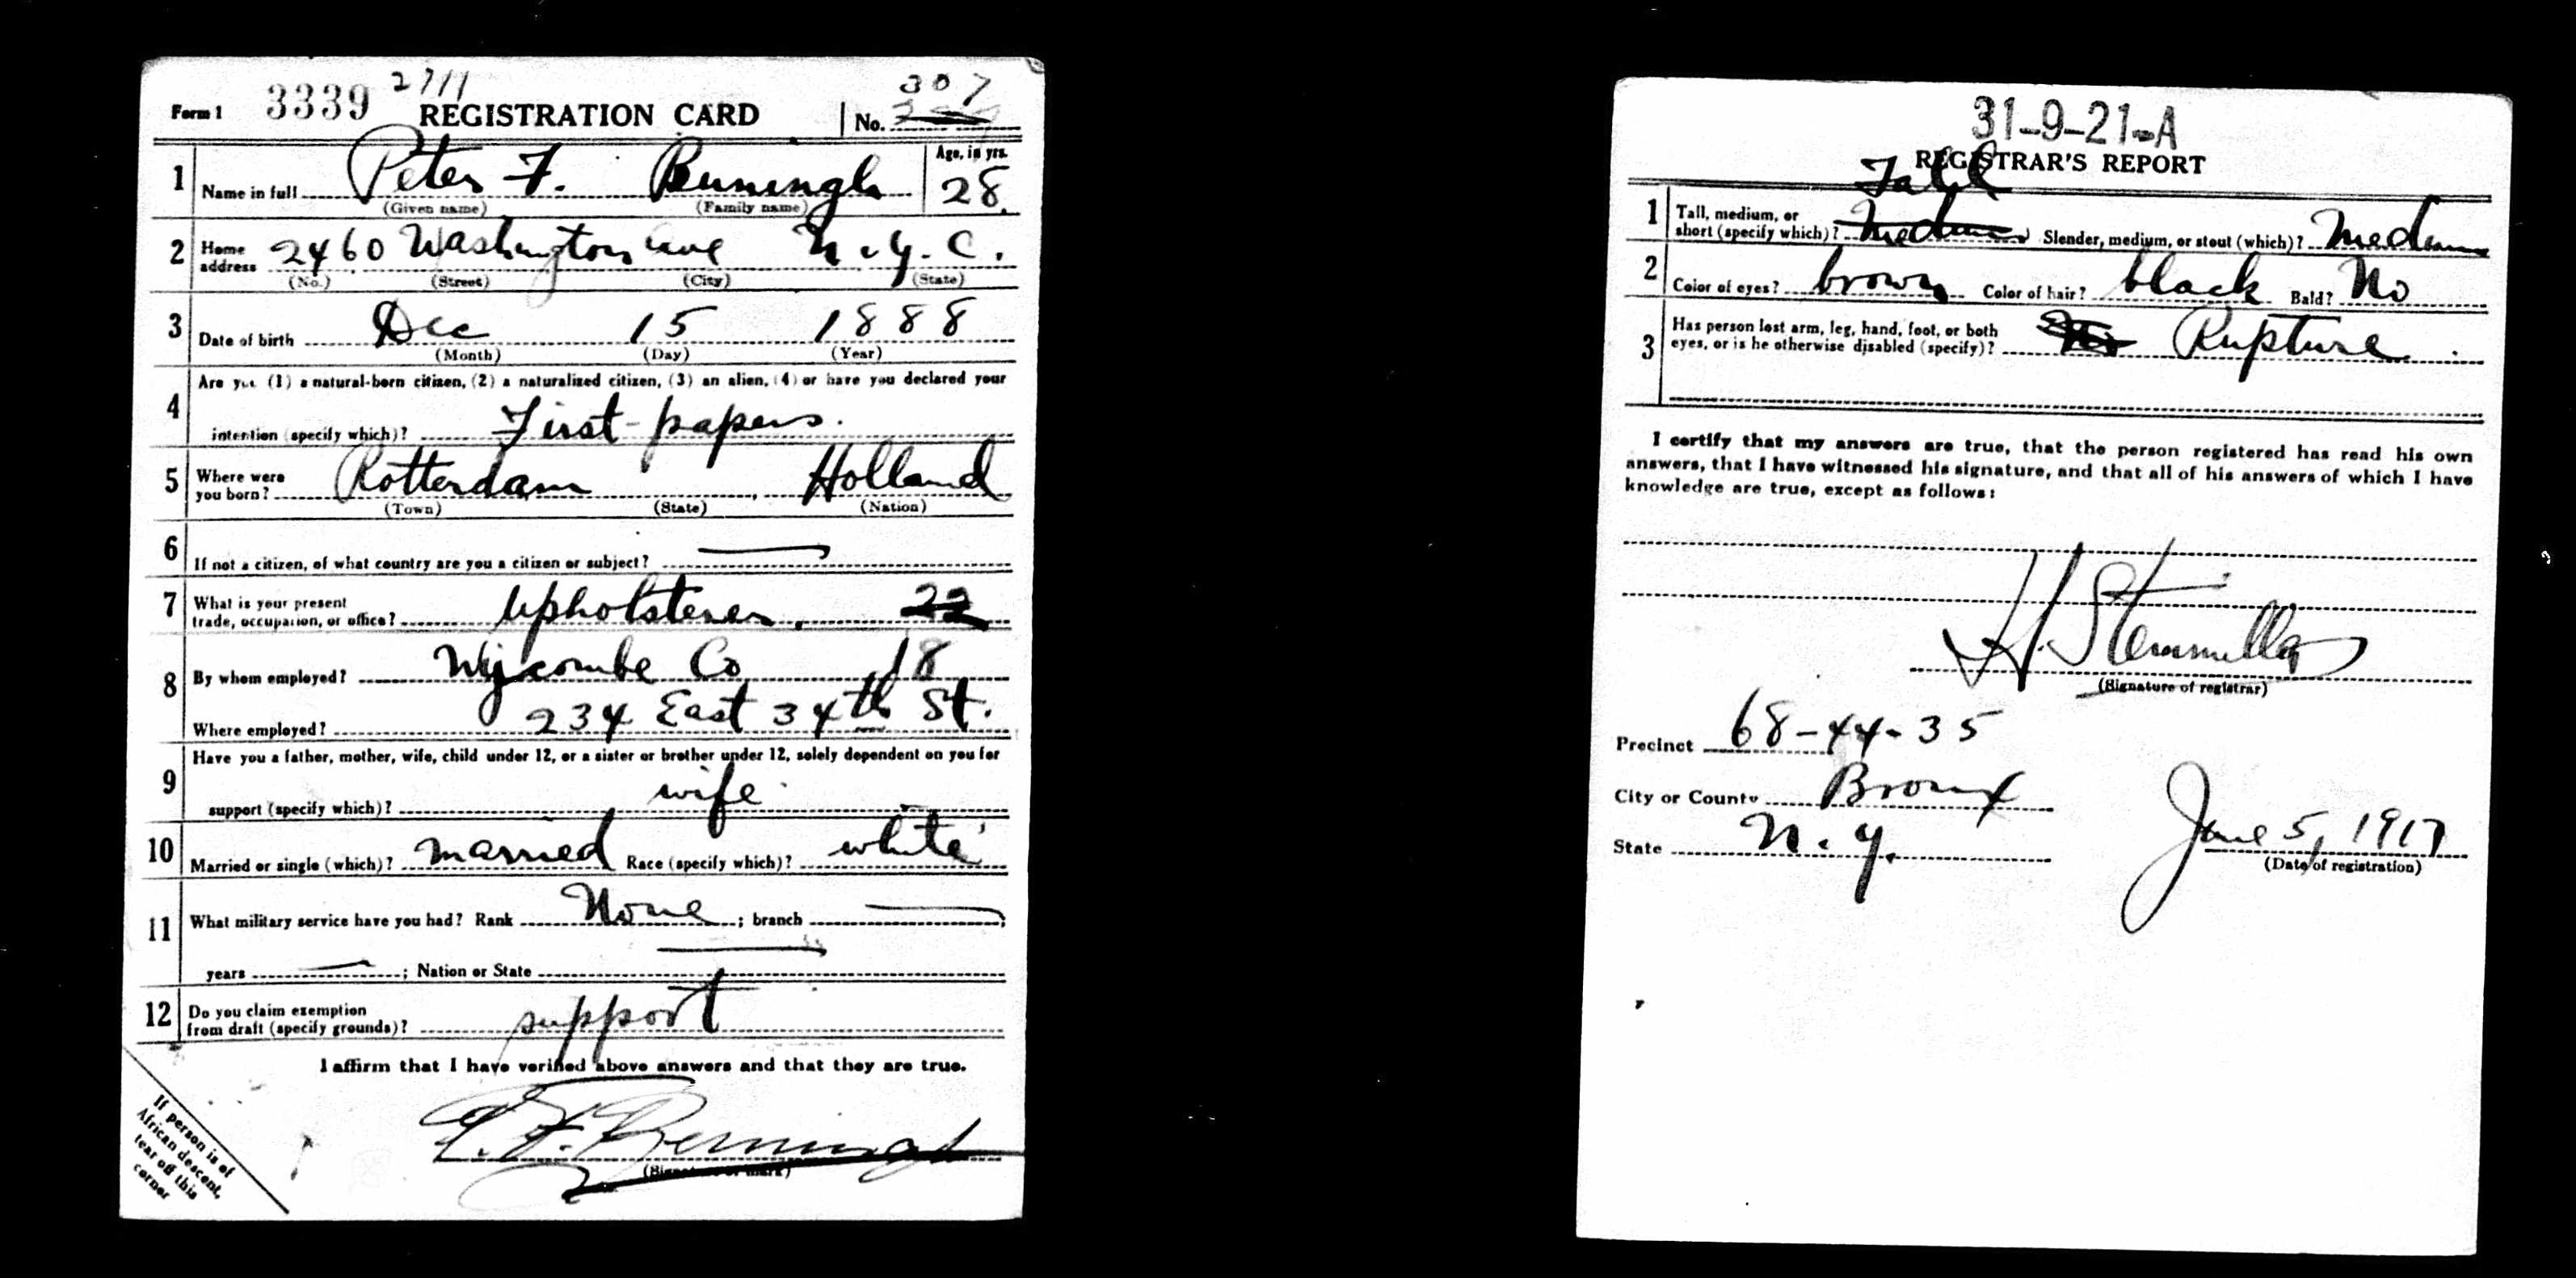 2711
Form 1 3339 REGISTRATION CARD No. 307
1 Name in full Peter F. Benningh Age, in yrs. 28
(Given name) (Family name)
2 Home address 2460 Washington ave N.Y.C.
(No.) (Street) (City) (State)
3 Date of birth Dec 15 1888
(Month) (Day) (Year)
4 Are you (1) a natural-born citizen, (2) a naturalized citizen, (3) an alien, (4) or have you declared your
intention (specify which)? First-papers.
5 Where were you born? Rotterdam Holland
(Town) (State) (Nation)
6 If not a citizen, of what country are you a citizen or subject? —
7 What is your present trade, occupation, or office? Upholsterer. 22
8 By whom employed? Wycombe Co 18
Where employed? 234 East 34th St.
9 Have you a father, mother, wife, child under 12, or a sister or brother under 12, solely dependent on you for
support (specify which)? wife
10 Married or single (which)? married Race (specify which)? white
11 What military service have you had? Rank None; branch —;
years —; Nation or State —
12 Do you claim exemption from draft (specify grounds)? support
I affirm that I have verified above answers and that they are true.
P. F. Benningh
(Signature or mark)
If person is of
African descent,
tear off this
corner
31-9-21-A
REGISTRAR'S REPORT
Tall
1 Tall, medium, or short (specify which)? Medium Slender, medium, or stout (which)? Medium
2 Color of eyes? brown Color of hair? black Bald? No
3 Has person lost arm, leg, hand, foot, or both
eyes, or is he otherwise disabled (specify)? Rupture
I certify that my answers are true, that the person registered has read his own
answers, that I have witnessed his signature, and that all of his answers of which I have
knowledge are true, except as follows:
H. Stemmller
(Signature of registrar)
Precinct 68-44-35
City or County Bronx
State N.Y. June 5, 1917
(Date of registration)